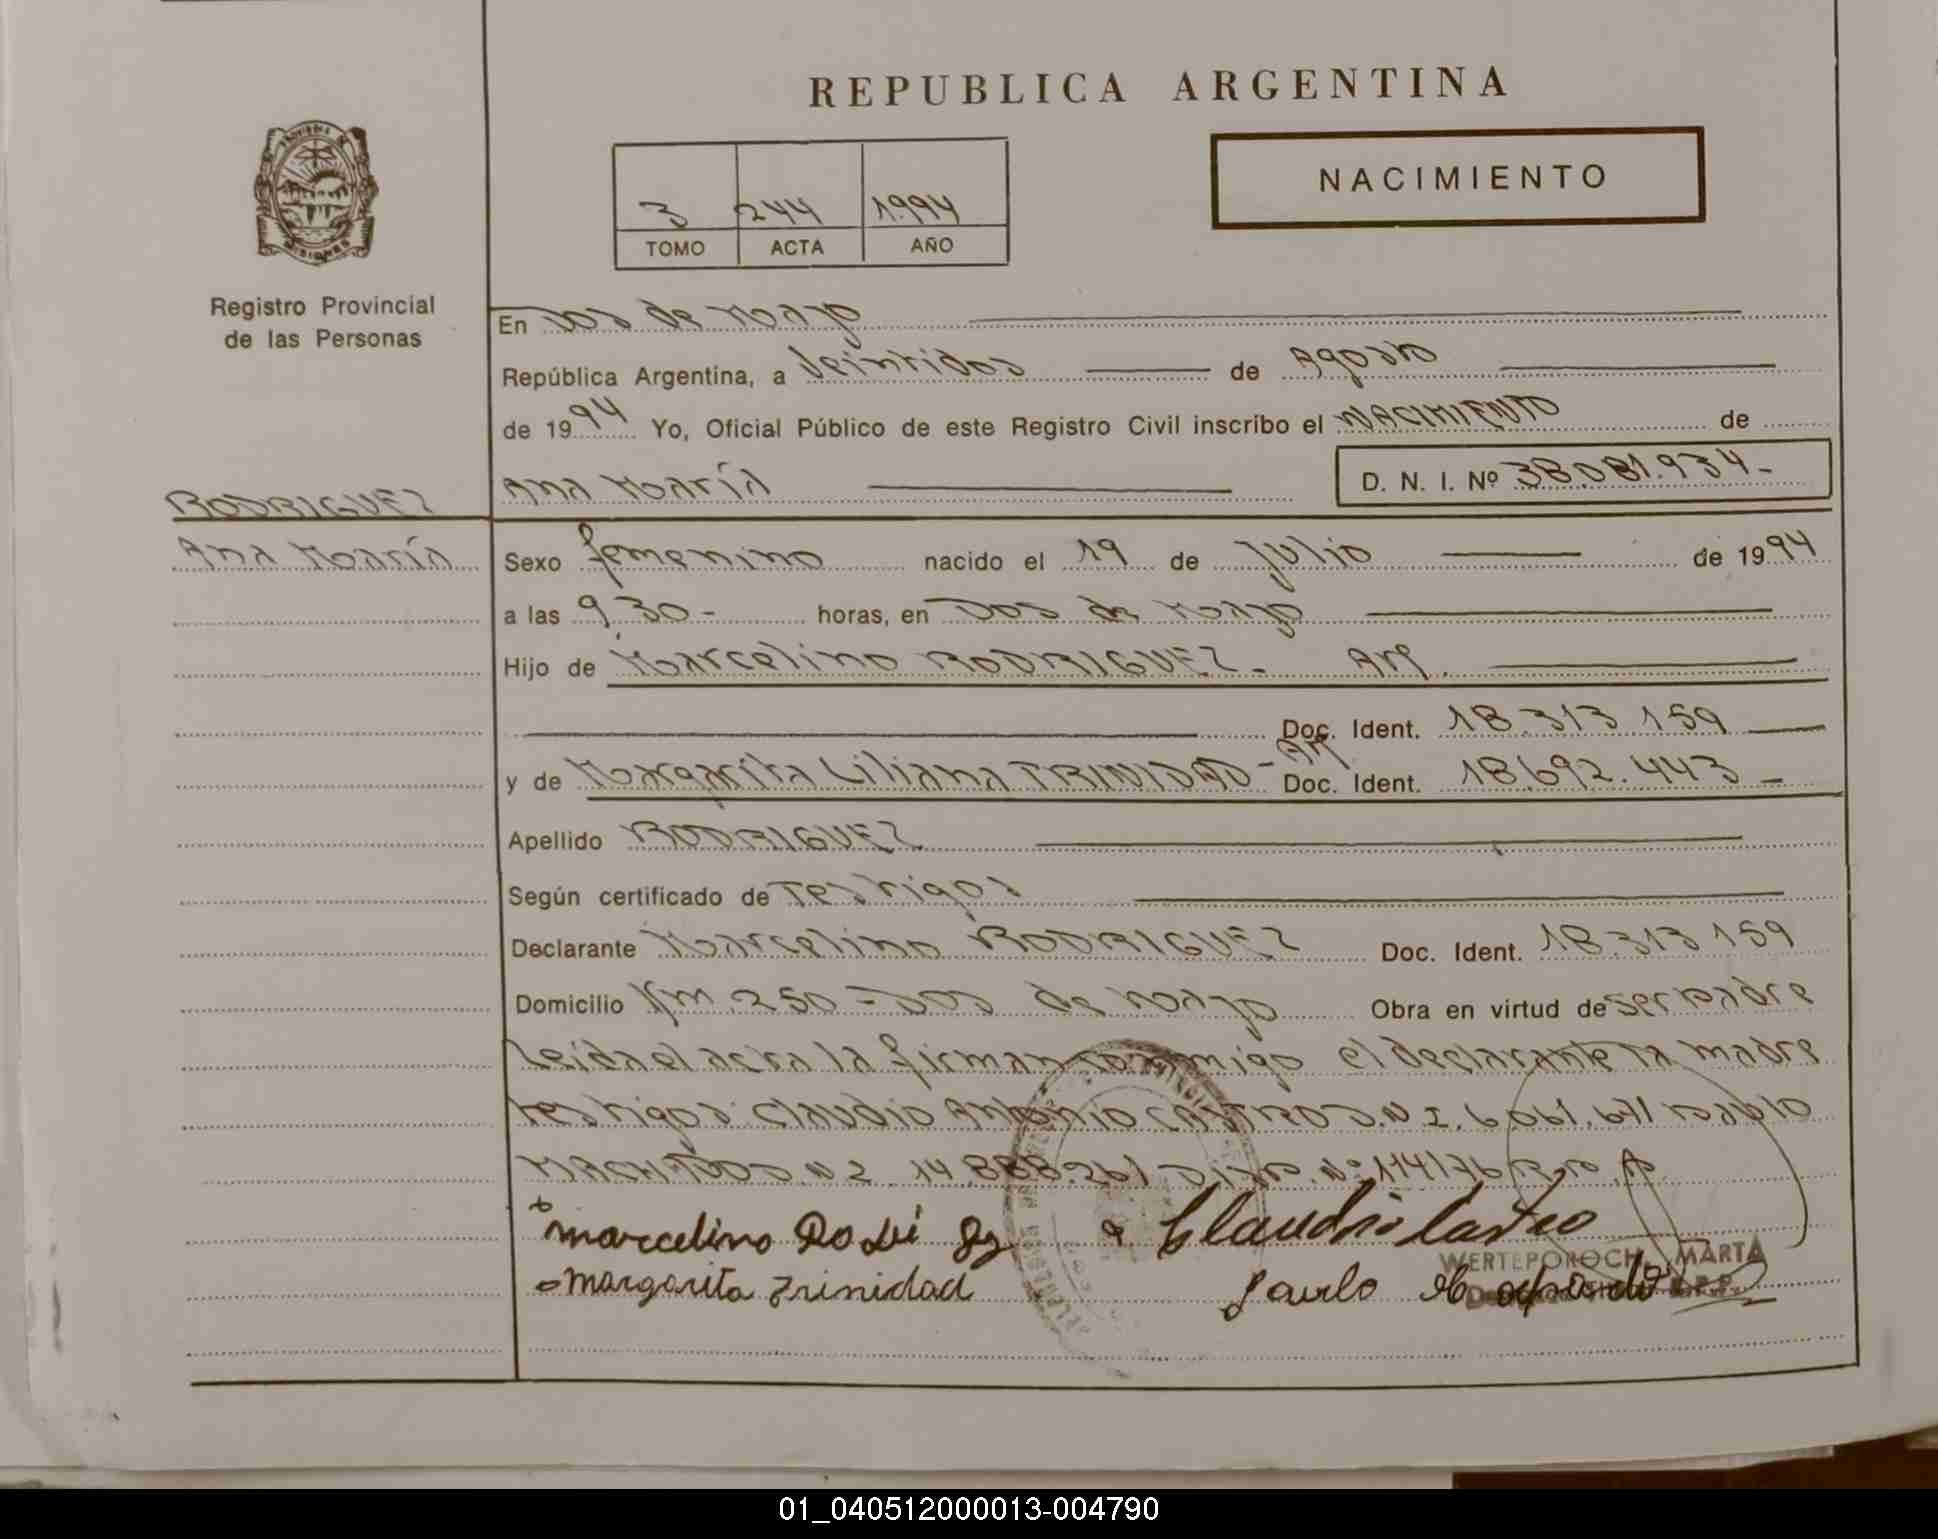 REPUBLICA ARGENTINA
NACIMIENTO
3 244 1994
TOMO ACTA AÑO
MISIONES
Registro Provincial
de las Personas
En Dos de Mayo
República Argentina, a Veintidos de Agosto
de 1994 Yo, Oficial Público de este Registro Civil inscribo el NACIMIENTO de
Ana María D. N. I. Nº 38.081.934-
RODRIGUEZ
Ana María
Sexo femenino nacido el 19 de Julio de 1994
a las 9,30- horas, en Dos de Mayo
Hijo de Marcelino RODRIGUEZ- Arg.
Doc. Ident. 18.313.159
y de Margarita Liliana TRINIDAD- Arg Doc. Ident. 18.692.443-
Apellido RODRIGUEZ
Según certificado de Testigos
Declarante Marcelino RODRIGUEZ Doc. Ident. 18.313.159
Domicilio Km 250-Dos de Mayo Obra en virtud de ser padre
Leida el acta la firman conmigo el declarante la madre
testigos: Claudio Antonio CASTRO D.N.I. 6.061.671 Pablo
MACHADO D.N.I. 14.888.261 Disp. Nº 114/76 R.P.P.
Marcelino Claudio Castro
Margarita Trinidad
WERTEPOROCH, MARTA
01_040512000013-004790